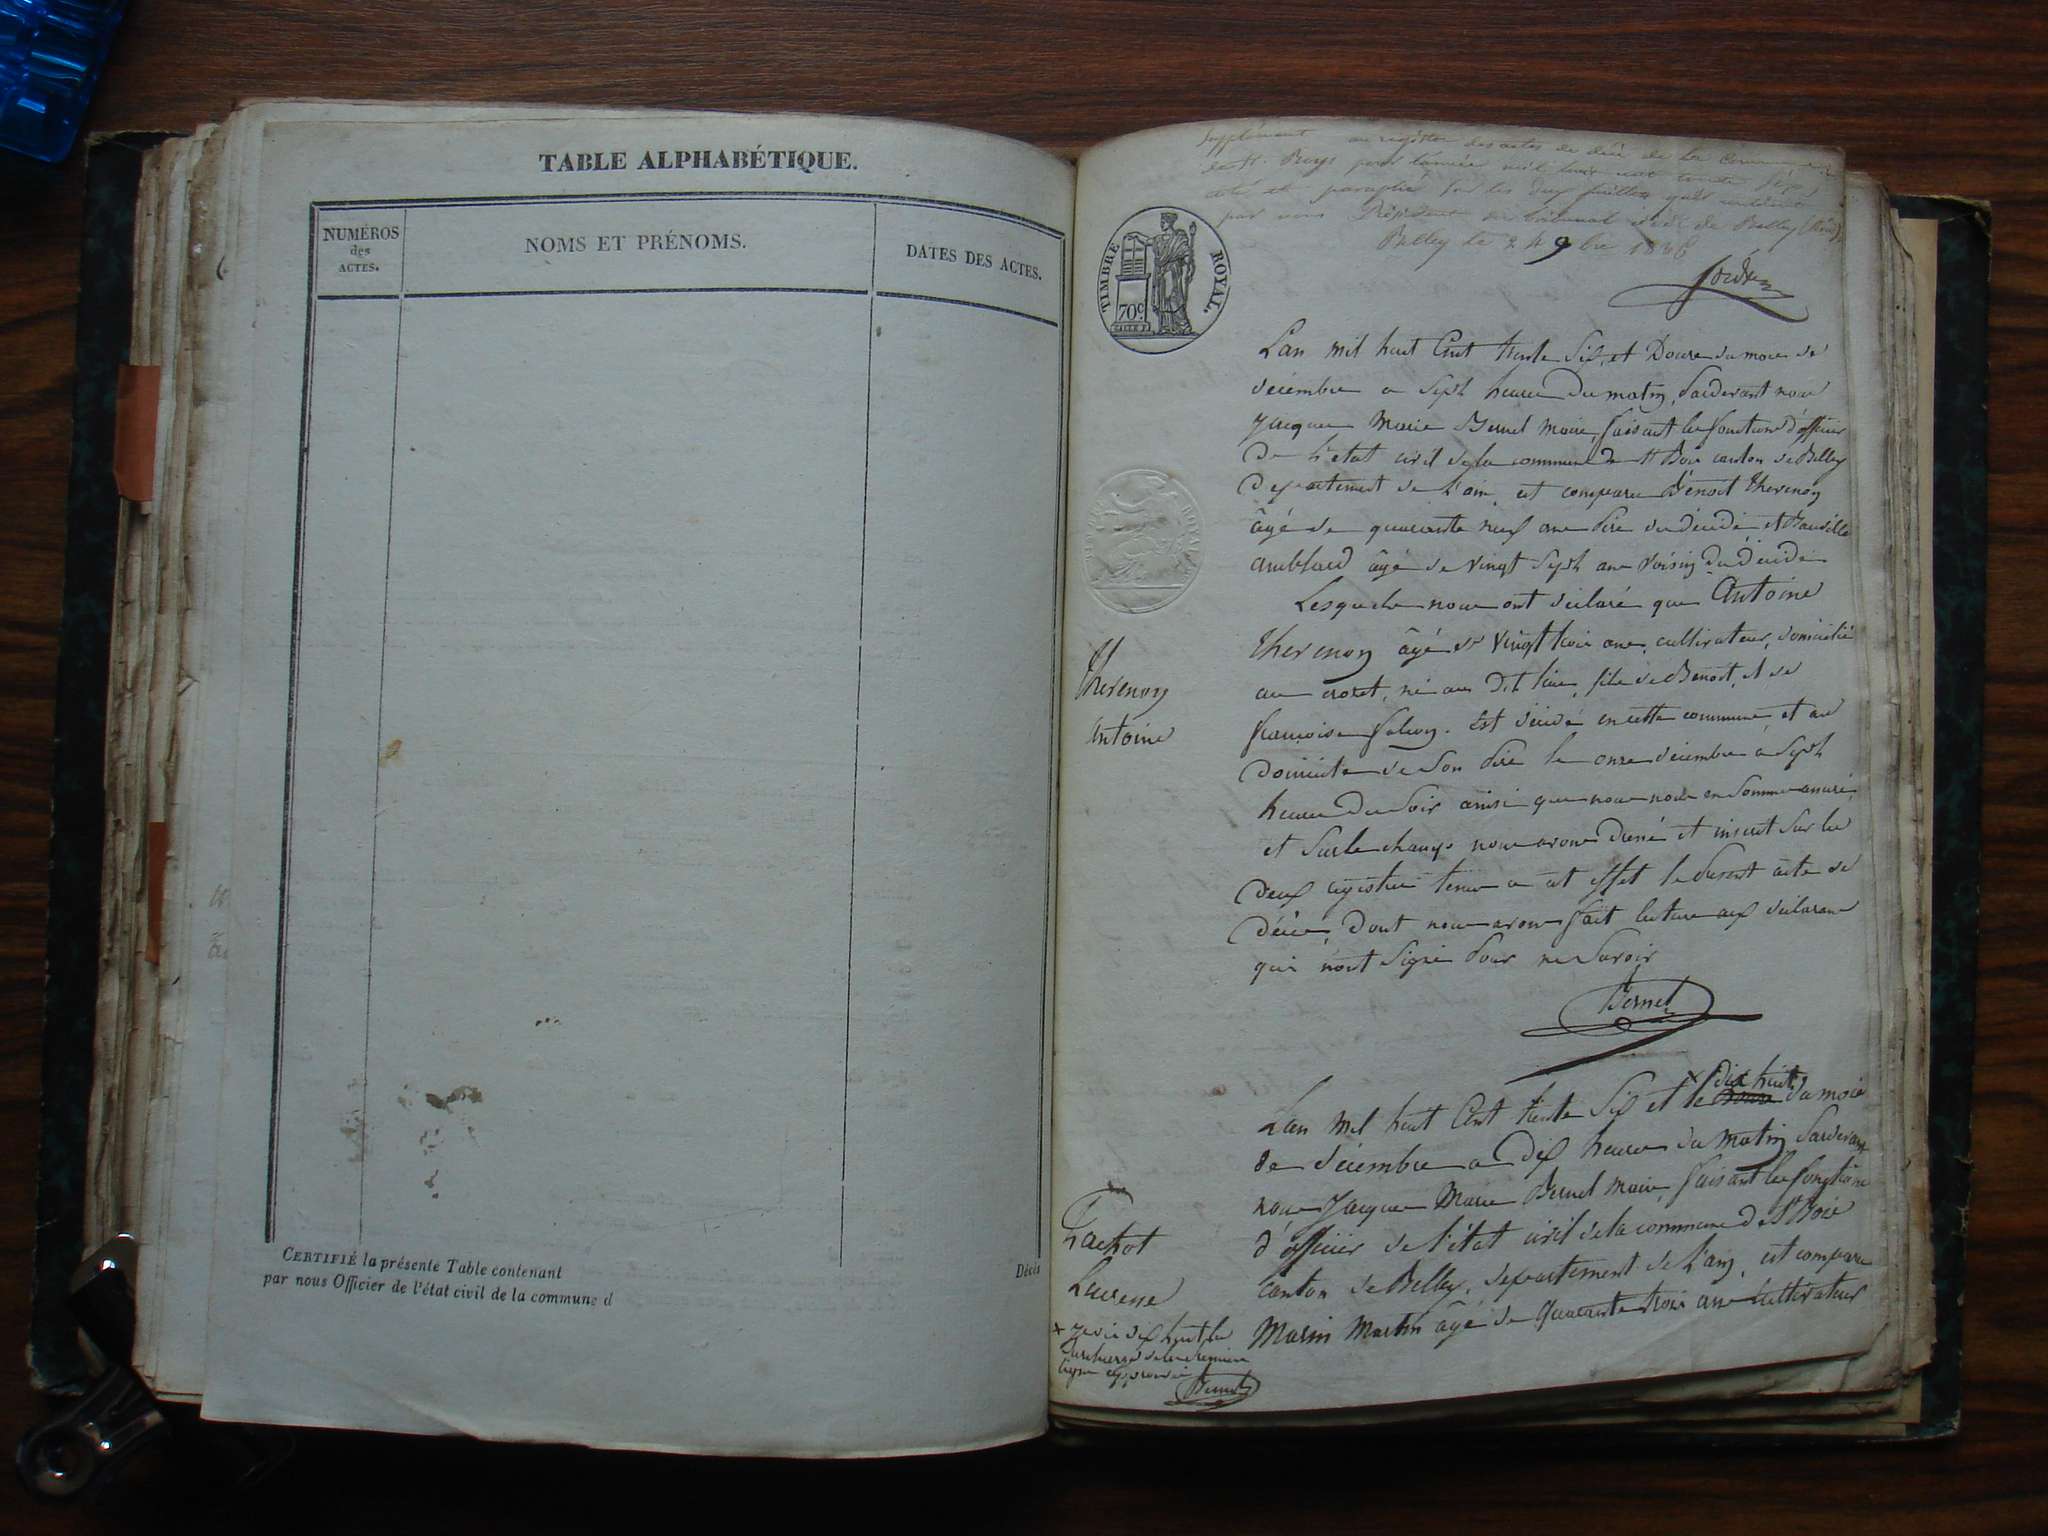 TABLE ALPHABÉTIQUE.
NUMÉROS
des
ACTES.
NOMS ET PRÉNOMS.
DATES DES ACTES.
CERTIFIÉ la présente Table contenant
Décès
par nous Officier de l'état civil de la commune d
Supplément au registre des actes de décè de la commune
de St. Boys pour l'année mil huit cent trente six,
coté et paraphé sur les deux feuillets
par nous Président du tribunal civil de Belley (Ain)
Belley le 24 9bre 1836
TIMBRE ROYAL.
70c.
Lan mil huit Cent trente Six, et Douze du mois de
décembre a Sept heures Du matin, Pardevant nous
Jacques Marie Bernel Maire, faisant les fonctions d'officier
De L'état civil de la commune de St Bois canton de Belley
Département de L'ain, est comparu Bénoit thevenon
âgé de quarante neuf ans Père du décédé et
amblard âgé de vingt Sept ans voisin du décédé
Lesquels nous ont déclaré que Antoine
thevenon âgé de vingt trois ans, cultivateur, domicilié
au crozet, né au Dit lieu, fils de Benoit, et de
françoise. Est décédé en cette commune et au
Domicile de Son Père le onze décembre à Sept
heures Du Soir ainsi que nous nous en Sommes assuré,
et Surle champs nous avons Dressé et inscrit Sur les
Deux registres tenus a cet effet le Présent acte de
Décès, Dont nous avons fait lecture aux déclarans
qui n'ont Signé Pour ne Savoir
Bernel
thevenon
Antoine
dix huit
Lan Mil huit Cent trente Six et le Douze du mois
De décembre a Dix heures du Matin Pardevant
nous Jacques Marie Bernel Maire, faisant les fonctions
d'officier de l'état civil de la commune de St Bois
Canton de Belley, département de L'ain, est comparu
Marin Martin âgé de Quarante trois ans Cultivateur
Lachot
x dix huit
Surchargé de la première
ligne approuvé
Bernel